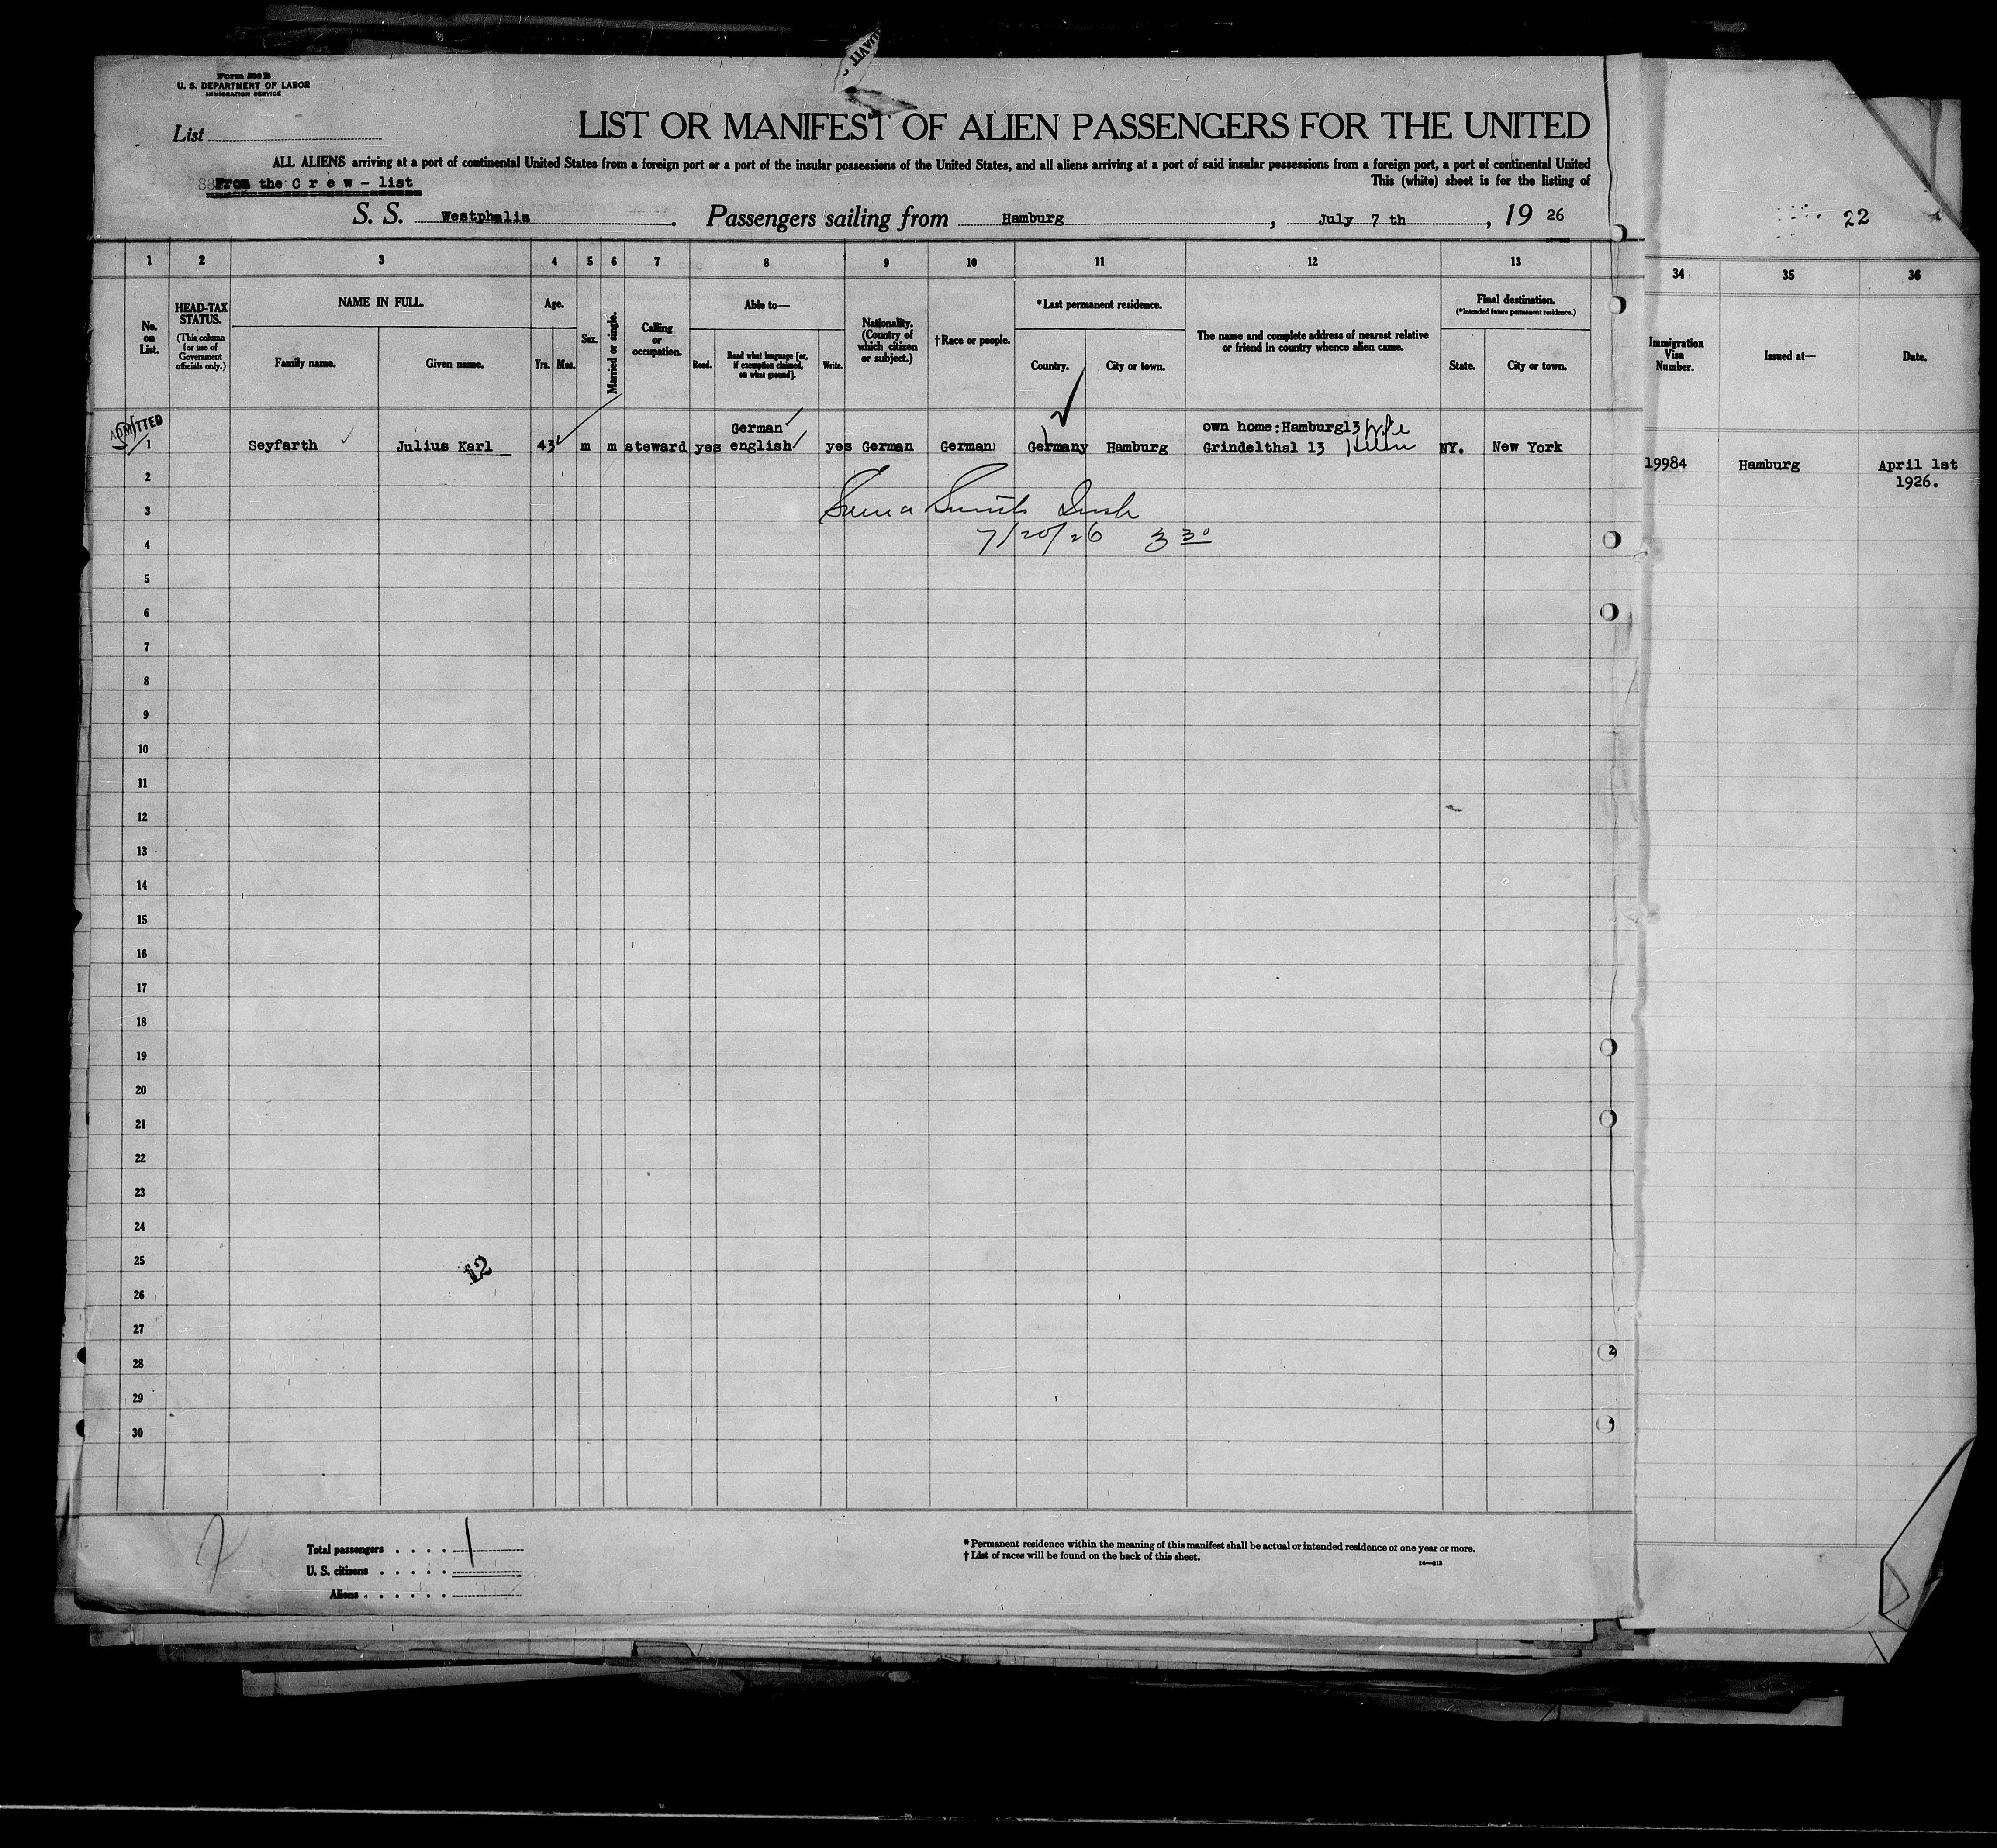 Form 500 B
U. S. DEPARTMENT OF LABOR
IMMIGRATION SERVICE
List
LIST OR MANIFEST OF ALIEN PASSENGERS FOR THE UNITED
ALL ALIENS arriving at a port of continental United States from a foreign port or a port of the insular possessions of the United States, and all aliens arriving at a port of said insular possessions from a foreign port, a port of continental United
From the C r e w - list
This (white) sheet is for the listing of
S. S. Westphalia . Passengers sailing from Hamburg , July 7 th , 19 26
22
1 2 3 4 5 6 7 8 9 10 11 12 13
34 35 36
No. on List.
HEAD-TAX STATUS.
(This column for use of Government officials only.)
NAME IN FULL.
Family name. Given name.
Age.
Yrs. Mos.
Sex.
Married or single.
Calling or occupation.
Able to—
Read. Read what language [or, if exemption claimed, on what ground]. Write.
Nationality. (Country of which citizen or subject.)
†Race or people.
*Last permanent residence.
Country. City or town.
The name and complete address of nearest relative or friend in country whence alien came.
Final destination.
(*Intended future permanent residence.)
State. City or town.
Immigration Visa Number.
Issued at—
Date.
ADMITTED
German own home:Hamburg13 wife
1 Seyfarth Julius Karl 43 m m steward yes english yes German German Germany Hamburg Grindelthal 13 Helen NY. New York
19984 Hamburg April 1st
1926.
2
3
4 7/20/26 3 30
5
6
7
8
9
10
11
12
13
14
15
16
17
18
19
20
21
22
23
24
25
12
26
27
28
29
30
2
Total passengers . . . . 1
U. S. citizens . . . . .
Aliens . . . . . .
*Permanent residence within the meaning of this manifest shall be actual or intended residence of one year or more.
†List of races will be found on the back of this sheet.
14—613